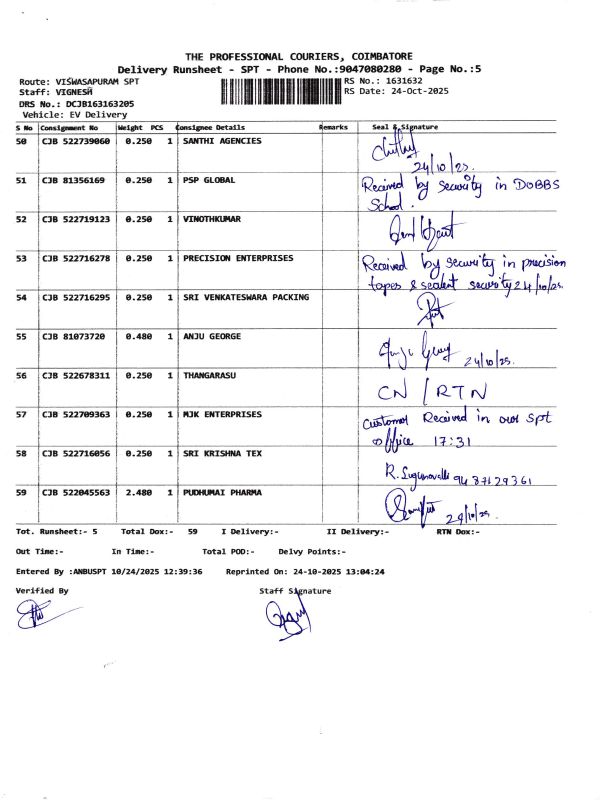 THE PROFESSIONAL COURIERS, COIMBATORE
Delivery Runsheet - SPT - Phone No.:9047080280 - Page No.:5
Route: VISWASAPURAM SPT
RS No.: 1631632
Staff: VIGNESH
RS Date: 24-Oct-2025
DRS No.: DCJB163163205
Vehicle: EV Delivery
S No Consignment No Weight PCS Consignee Details Remarks Seal & Signature
50 CJB 522739060 0.250 1 SANTHI AGENCIES
24/10/25.
51 CJB 81356169 0.250 1 PSP GLOBAL Received by security in DOBBS
School.
52 CJB 522719123 0.250 1 VINOTHKUMAR
53 CJB 522716278 0.250 1 PRECISION ENTERPRISES Received by security in precision
tapes & sealent security 24/10/25.
54 CJB 522716295 0.250 1 SRI VENKATESWARA PACKING
55 CJB 81073720 0.480 1 ANJU GEORGE
24/10/25.
56 CJB 522678311 0.250 1 THANGARASU CN / RTN
57 CJB 522709363 0.250 1 MJK ENTERPRISES Customer Received in our spt
office 17:31
58 CJB 522716056 0.250 1 SRI KRISHNA TEX
R. 9487129361
59 CJB 522045563 2.480 1 PUDHUMAI PHARMA
24/10/25.
Tot. Runsheet:- 5 Total Dox:- 59 I Delivery:- II Delivery:- RTN Dox:-
Out Time:- In Time:- Total POD:- Delvy Points:-
Entered By :ANBUSPT 10/24/2025 12:39:36 Reprinted On: 24-10-2025 13:04:24
Verified By Staff Signature